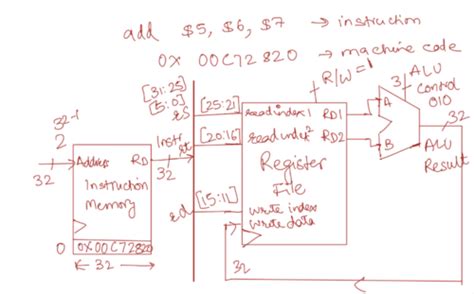 add $5, $6, $7 → instruction
0x 00C72820 → machine code
[31:25]
[5:0]
R/W = 1
3 ALU
Control
010
rs [25:21] read index 1 RD1 A
32
2³²⁻¹
Instr
rt [20:16] read index 2 RD2 B
Address RD
32
32
Instruction
Memory
Register
File
ALU
Result
rd [15:11] write index
write data
0 0x00C72820
32
32